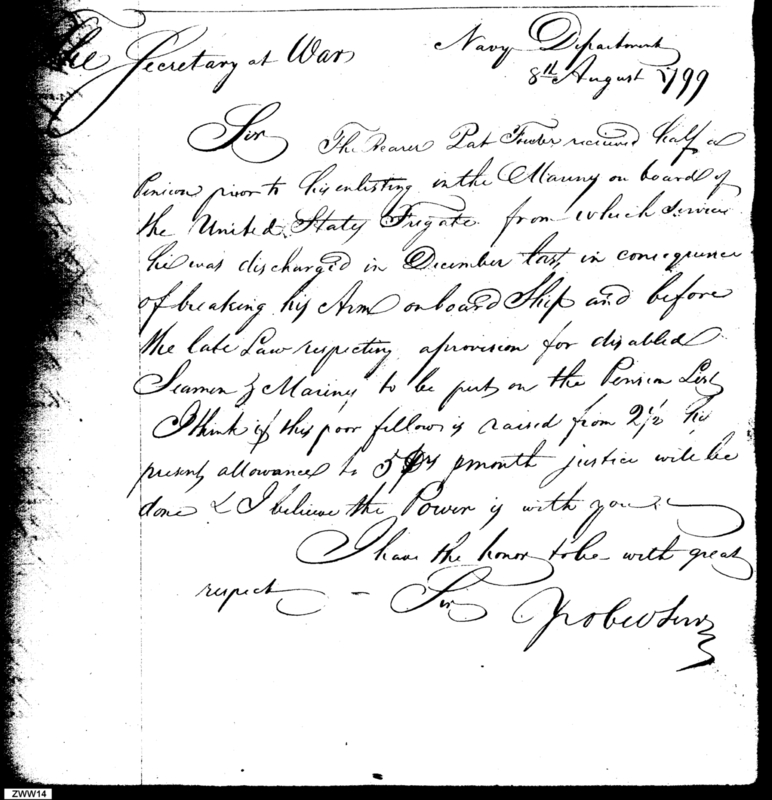 The Secretary at War Navy Department
8th August 1799
Sir The Bearer Pat Fowler received half a
Pension prior to his enlisting in the Marines on board of
the United States Frigate from which service
he was discharged in December last, in consequence
of breaking his Arm on board Ship and before
the late Law respecting a provision for disabled
Seamen & Marines to be put on the Pension List
I think if this poor fellow is raised from 2 1/2 his
present allowance to 5 Drs p month justice will be
done & I believe the Power is with you.
I have the honor to be with great
respect - Sir Yr obed Serv
ZWW14